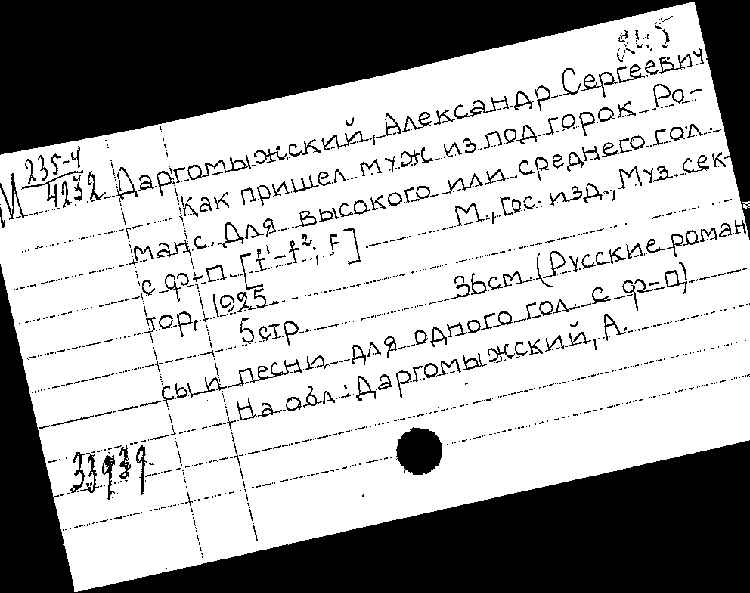 245
М 235-4
4232
Даргомыжский, Александр Сергеевич
Как пришел муж из под горок Ро-
манс. Для высокого или среднего гол.
с ф-п. [f¹-f²; F] М., Гос. изд., Муз сек-
тор, 1925.
5стр. 36см (Русские роман
сы и песни для одного гол с ф-п)
На обл: Даргомыжский, А.
33939